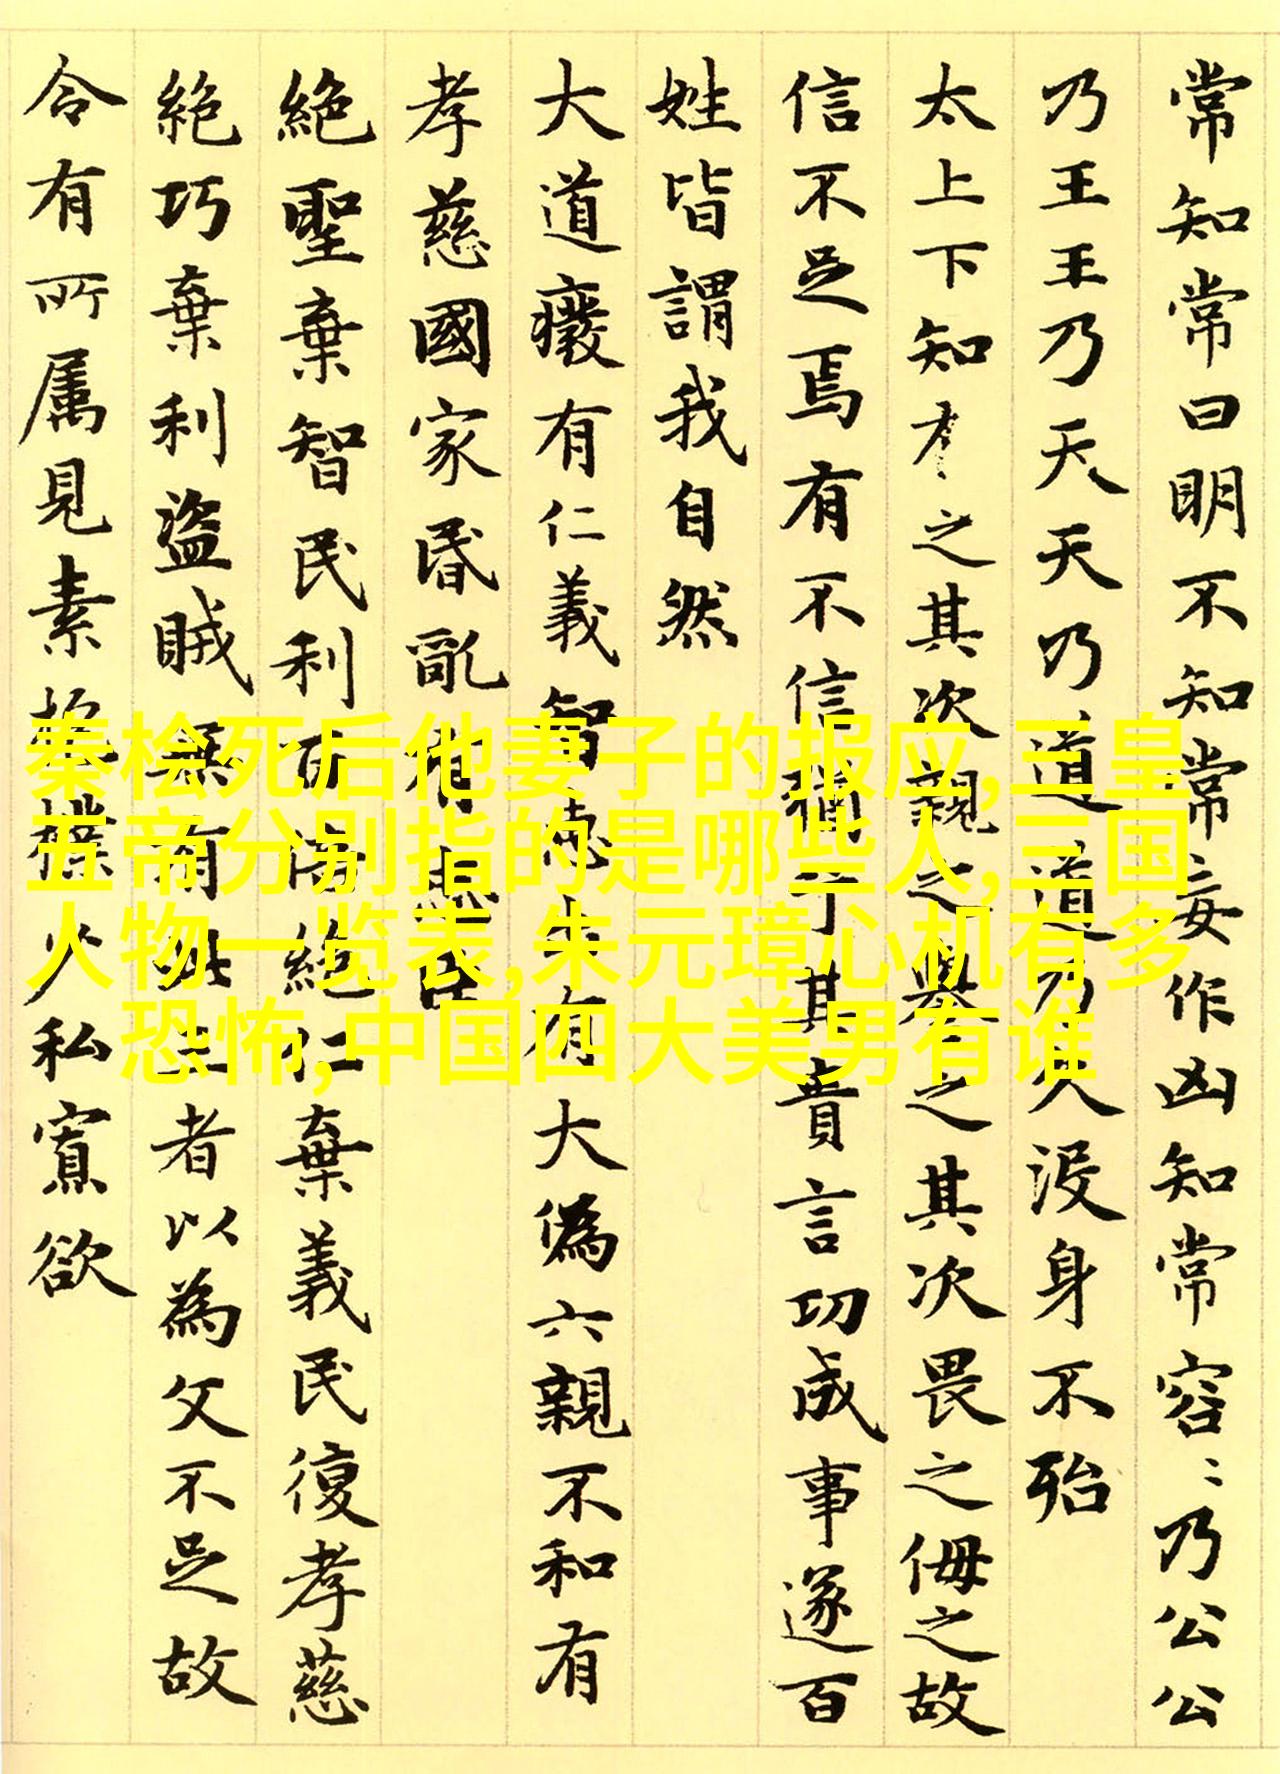 常知常曰明不知知常妄作凶知常容〻乃公公
乃王王乃天天乃道道乃久沒身不殆
太上下知有之其次親之譽之其次畏之侮之故
信不足焉有不信猶乎其貴言功成事遂百
姓皆謂我自然
大道癈有仁義智惠出有大偽六親不和有
孝慈國家昏亂有忠臣
絶聖棄智民利百倍絶仁棄義民復孝慈
絶巧棄利盜賊無有此三者以為文不足故
令有所属見素抱樸少私寡欲
秦桧死后他妻子的报应,三皇
五帝分别指的是哪些人,三国
人物一览表,朱元璋心机有多
恐怖,中国四大美男有谁